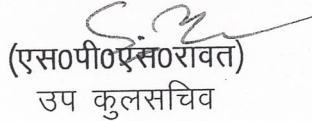 (एस0पी0एस0रावत)
उप कुलसचिव